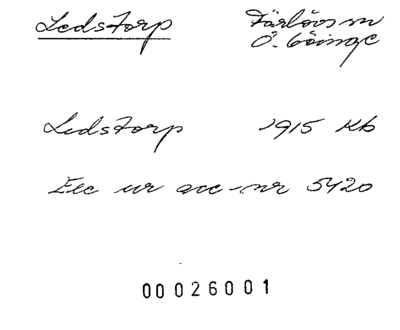 Ledstorp
Färlövs sn
Ö. Göinge
Ledstorp 1915 Kb
Exc ur acc-nr 5420
00026001